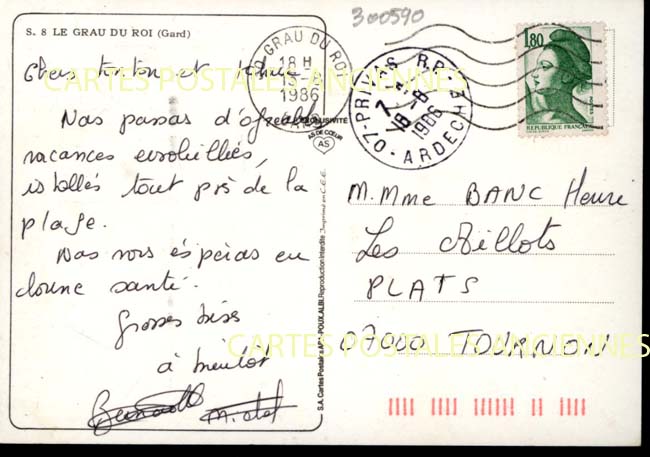 S. 8 LE GRAU DU ROI (Gard)
300590
Chers tonton et
LE GRAU DU ROI
18 H
15-8
1986
GARD
07-PRIVAS R.P.
18-8
1986
ARDECHE
1,80
REPUBLIQUE FRANÇAISE
CARTES POSTALES ANCIENNES
EXCLUSIVITÉ
AS DE CŒUR
AS
Nas passas d'agréables
vacances ensoleillés,
istallés tout près de la
plage.
Nas vous éspéras en
bonne santé.
Grosses bises
à bientôt
M. Mme BANC Henri
Les
PLATS
07000 TOURNON
CARTES POSTALES ANCIENNES
S.A. Cartes Postales APA-POUX, ALBI, Reproduction Interdite